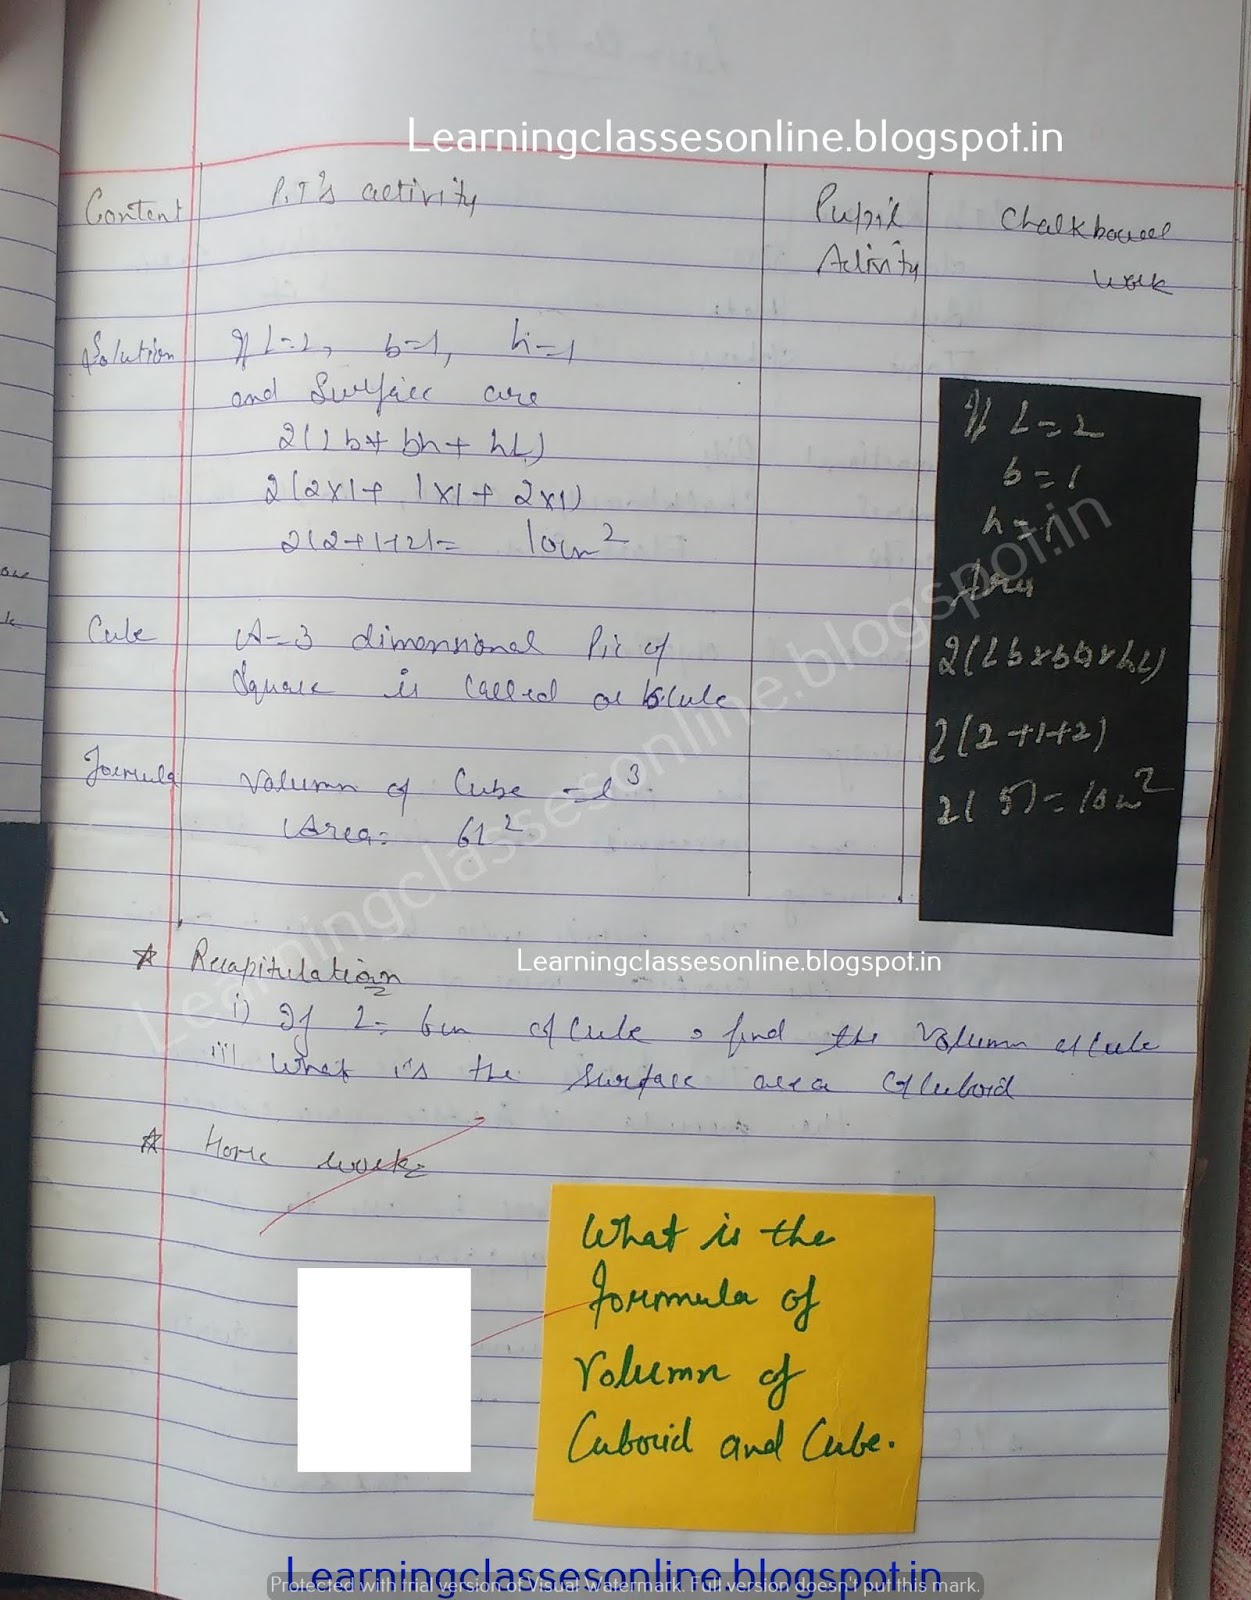 Learningclassesonline.blogspot.in
Content P.T's activity Pupil Activity Chalkboard work
Solution If L=2, b=1, h=1
and Surface are
2(Lb+ bh+ hL)
2(2x1+ 1x1+ 2x1)
2(2+1+2)= 10cm²
If L=2
b=1
h=1
Area
2(Lb+bh+hL)
2(2+1+2)
2(5)=10cm²
Cube A-3 dimensional Pic of
Square is called a cube
Formula Volumn of Cube =l³
Area= 6l²
Learningclassesonline.blogspot.in
☆ Recapitulation
Learningclassesonline.blogspot.in
i) If L= 6cm of Cube, find the Volumn of Cube
ii) What is the Surface area of Cuboid
☆ Home work=
What is the
formula of
Volumn of
Cuboid and Cube.
Learningclassesonline.blogspot.in
Protected with trial version of Visual Watermark. Full version doesn't put this mark.